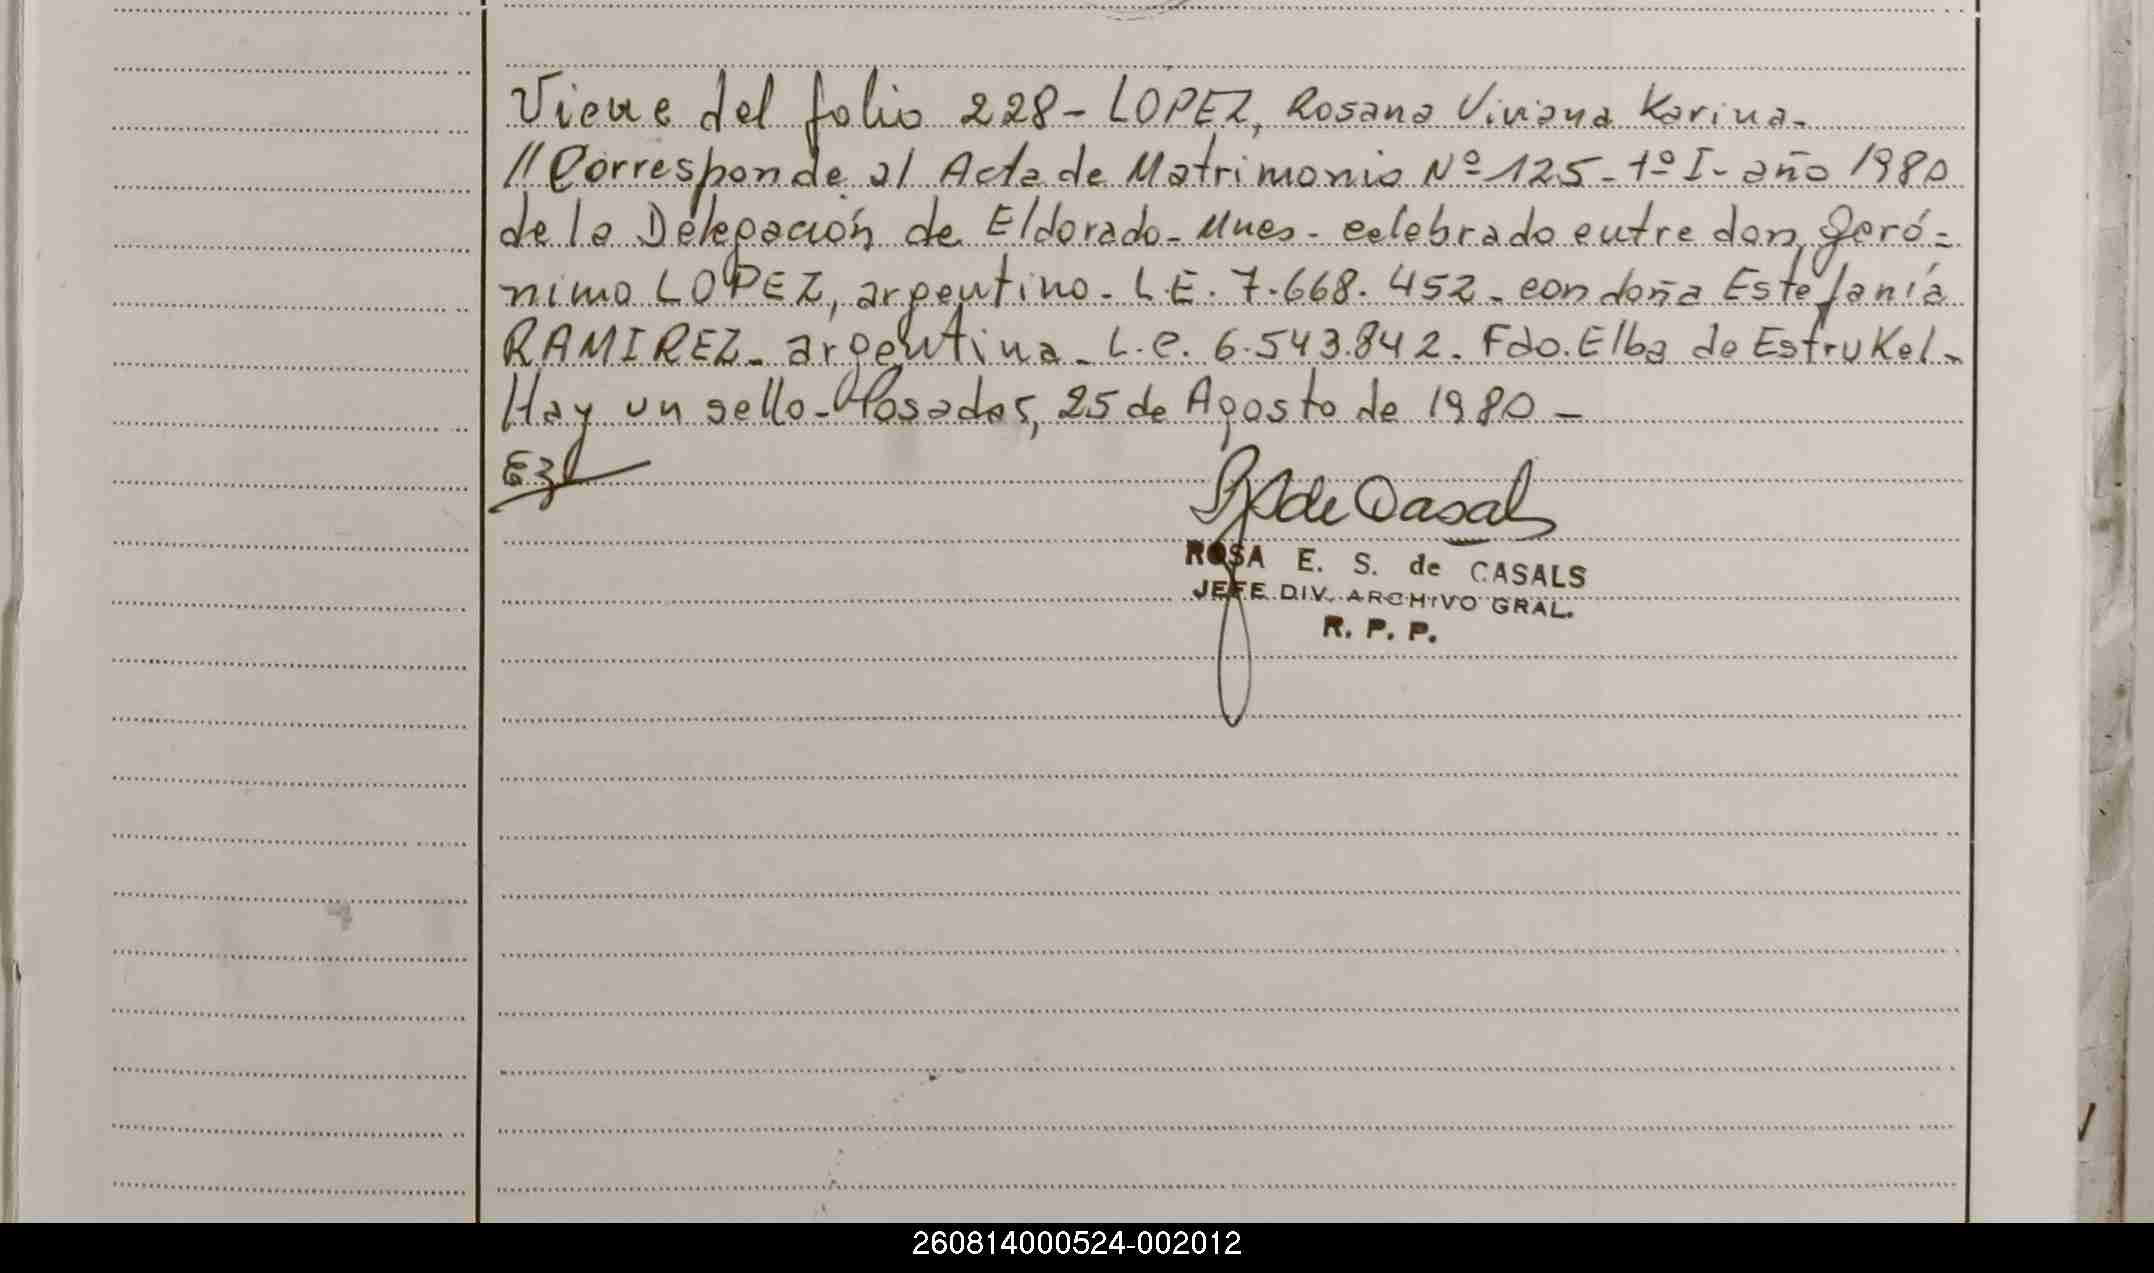 Viene del folio 228 - LOPEZ, Rosana Viviana Karina.-
// Corresponde al Acta de Matrimonio Nº 125 - tº I - año 1980
de la Delegación de Eldorado - Mnes - celebrado entre don Geró=
nimo LOPEZ, argentino. L.E. 7.668.452 - con doña Estefanía
RAMIREZ - argentina - L.C. 6.543.842. Fdo. Elba de Estrukel -
Hay un sello - Posadas, 25 de Agosto de 1980 -
de Casals
ROSA E. S. de CASALS
JEFE DIV. ARCHIVO GRAL.
R. P. P.
260814000524-002012